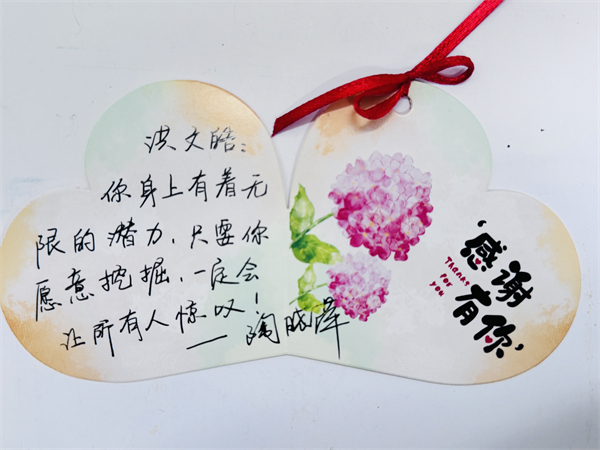 洪文皓：
你身上有着无
限的潜力，只要你
愿意挖掘，一定会
让所有人惊叹！
——陶晓萍
感谢
有你
THANKS
FOR
YOU